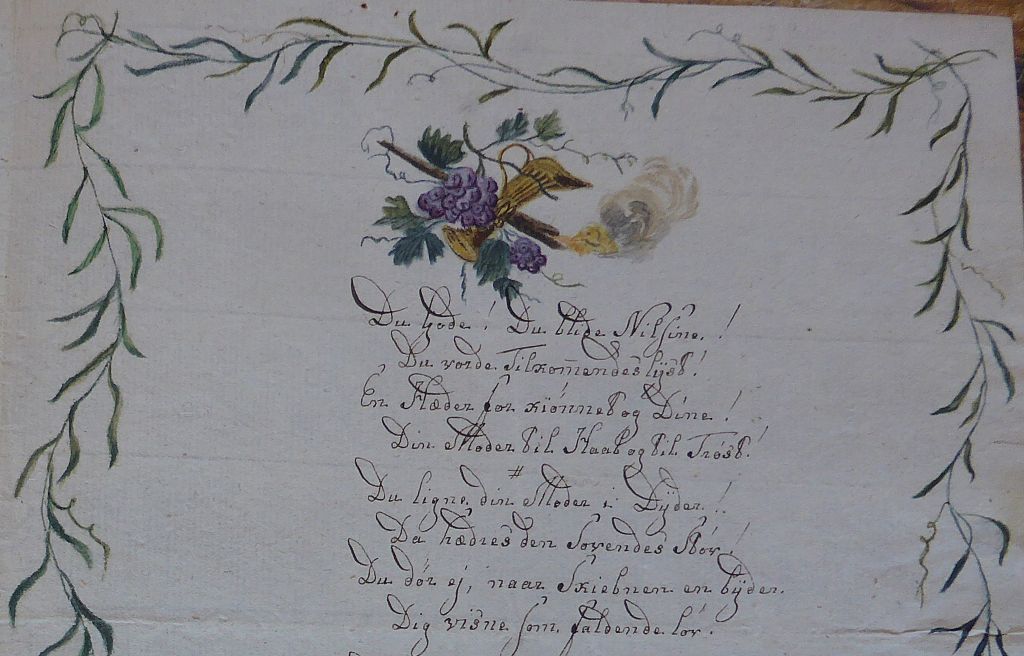 Du Gode! Du blide Nilsine!
Du vorde Tilkom̄endes lyst!
En Hæder for kiønnet og Dine!
Din Moder til Haab og til Trøst!
#
Du ligne din Moder i Dÿder!!
Da hædres den Sovendes Støv!
Du dør ej, naar Skiebnen en bÿder.
Dig visne som faldende løv.